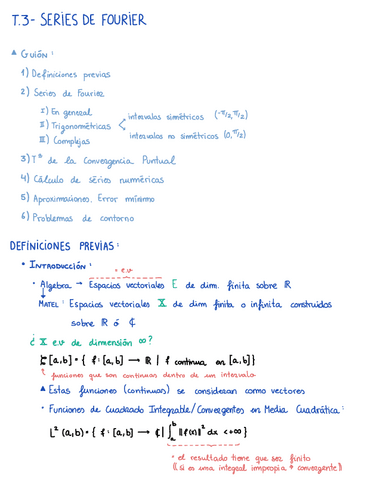 T.3- SERIES DE FOURIER
▲ GUIÓN:
1) Definiciones previas
2) Series de Fourier
I) En general
II) Trigonométricas
intervalos simétricos (-π/2, π/2)
intervalos no simétricos (0, π/2)
III) Complejas
3) Tª de la Convergencia Puntual
4) Cálculo de séries numéricas
5) Aproximaciones. Error mínimo
6) Problemas de contorno
DEFINICIONES PREVIAS:
• INTRODUCCIÓN:
• e.v
• Algebra → Espacios vectoriales E de dim. finita sobre ℝ
MATEL: Espacios vectoriales X de dim finita o infinita construidos
sobre ℝ ó ℂ
¿ X e.v de dimensión ∞?
[a,b] = { f: [a,b] → ℝ | f continua en [a,b] }
funciones que son continuas dentro de un intervalo
▲ Estas funciones (continuas) se consideran como vectores
• Funciones de Cuadrado Integrable/Convergentes en Media Cuadrática:
L² (a,b) = { f: [a,b] → ℂ | ∫ₐᵇ ‖f(x)‖² dx < +∞ }
• el resultado tiene que ser finito
(si es una integral impropia → convergente)